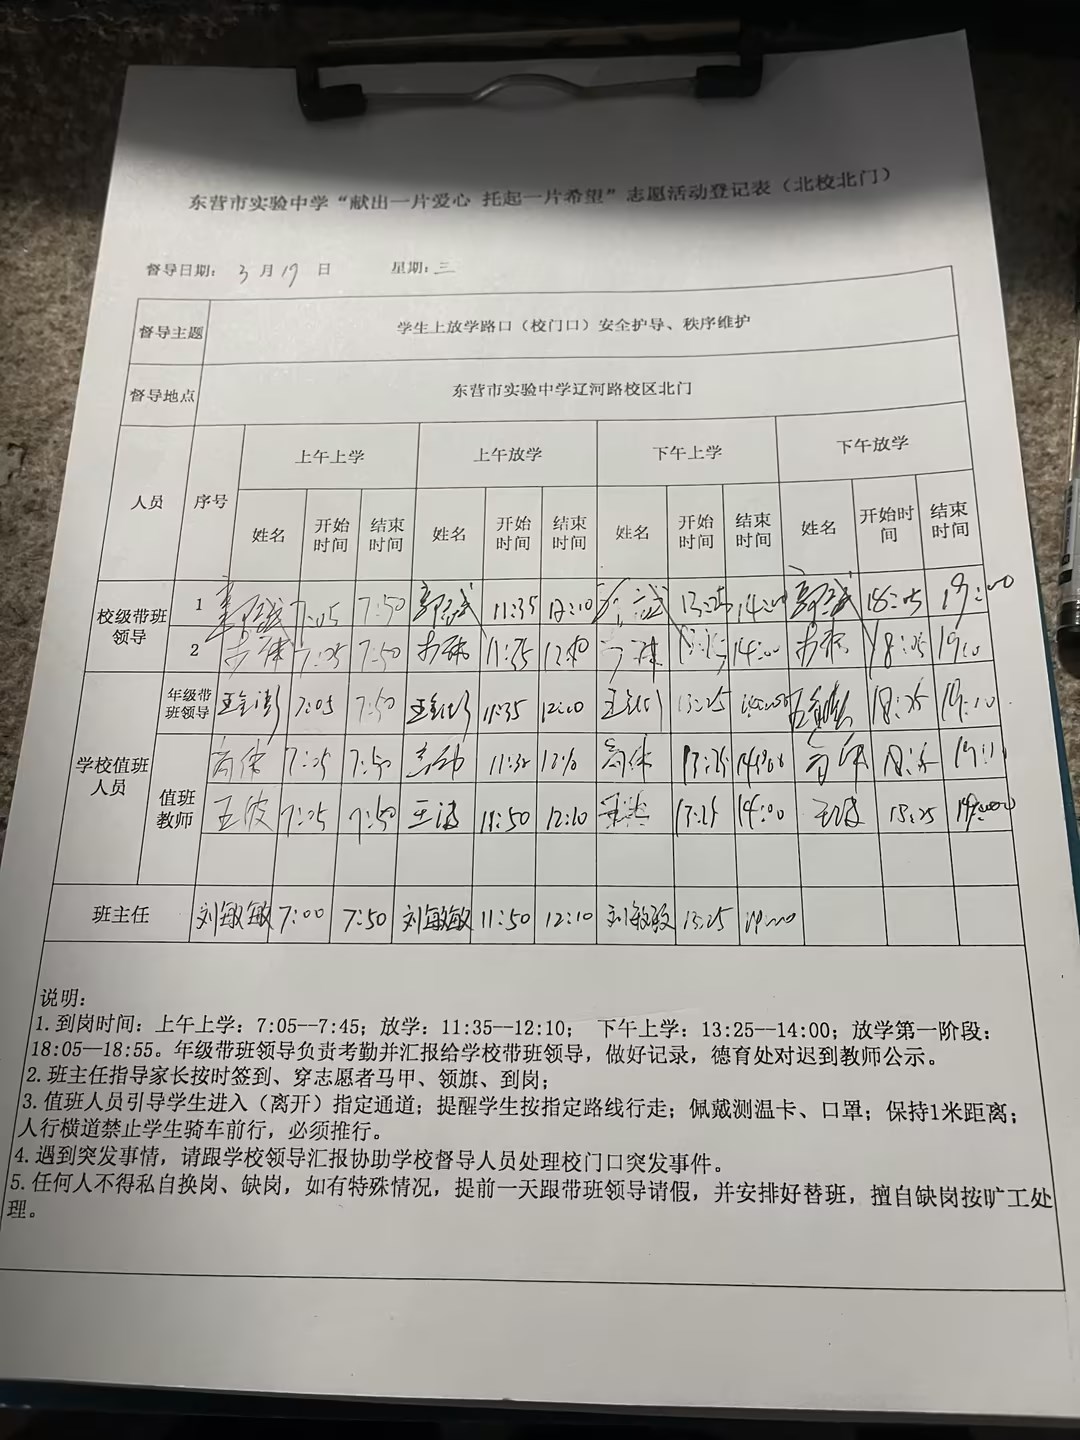 东营市实验中学“献出一片爱心 托起一片希望”志愿活动登记表（北校北门）
督导日期： 3 月 19 日 星期：三
督导主题 学生上放学路口（校门口）安全护导、秩序维护
督导地点 东营市实验中学辽河路校区北门
人员 序号 上午上学 上午放学 下午上学 下午放学
姓名 开始时间 结束时间 姓名 开始时间 结束时间 姓名 开始时间 结束时间 姓名 开始时间 结束时间
校级带班领导
1 7:05 7:50 11:35 12:10 13:25 14:00 18:05 19:00
2 7:05 7:50 11:35 14:00 18:05 19:10
学校值班人员
年级带班领导 7:05 7:50 11:35 12:10 13:25 18:25 19:10
值班教师
高伟 7:25 7:50 高伟 高伟 13:25
王波 7:25 7:50 王波 11:50 12:10 13:25 14:00 王波 18:25
班主任 刘敏敏 7:00 7:50 刘敏敏 11:50 12:10 刘敏敏 13:25
说明：
1. 到岗时间：上午上学：7:05--7:45；放学：11:35--12:10； 下午上学：13:25--14:00；放学第一阶段：
18:05--18:55。年级带班领导负责考勤并汇报给学校带班领导，做好记录，德育处对迟到教师公示。
2. 班主任指导家长按时签到、穿志愿者马甲、领旗、到岗；
3. 值班人员引导学生进入（离开）指定通道；提醒学生按指定路线行走；佩戴测温卡、口罩；保持1米距离；
人行横道禁止学生骑车前行，必须推行。
4. 遇到突发事情，请跟学校领导汇报协助学校督导人员处理校门口突发事件。
5. 任何人不得私自换岗、缺岗，如有特殊情况，提前一天跟带班领导请假，并安排好替班，擅自缺岗按旷工处
理。